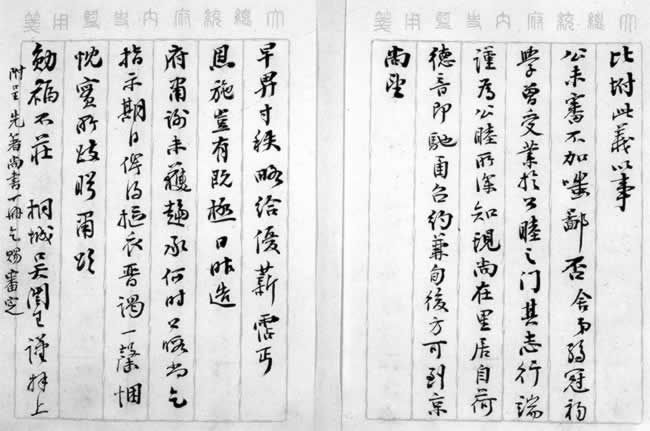 大總統府內史監用箋
比附此義以事
公未審不加嗤鄙否舍弟弱冠初
學曾受業於公睦之门其志行端
謹為公睦所深知現尚在里居自荷
德音即馳函召約兼旬後方可到京
尚望
大總統府內史監用箋
早畀寸秩略給優薪霑丐
恩施豈有既極日昨造
府肅謝未獲趨承何時公暇尚乞
指示期日俾得摳衣晉謁一罄悃
忱實所跂盼肅頌
勛福不莊 桐城吳闓生謹拜上
附呈先著尚書一冊乞賜審定